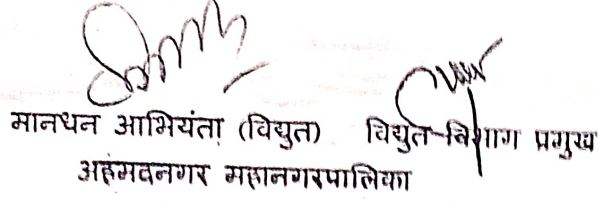 मानधन आभियंता (विद्युत) विद्युत विभाग प्रमुख
अहमदनगर महानगरपालिका